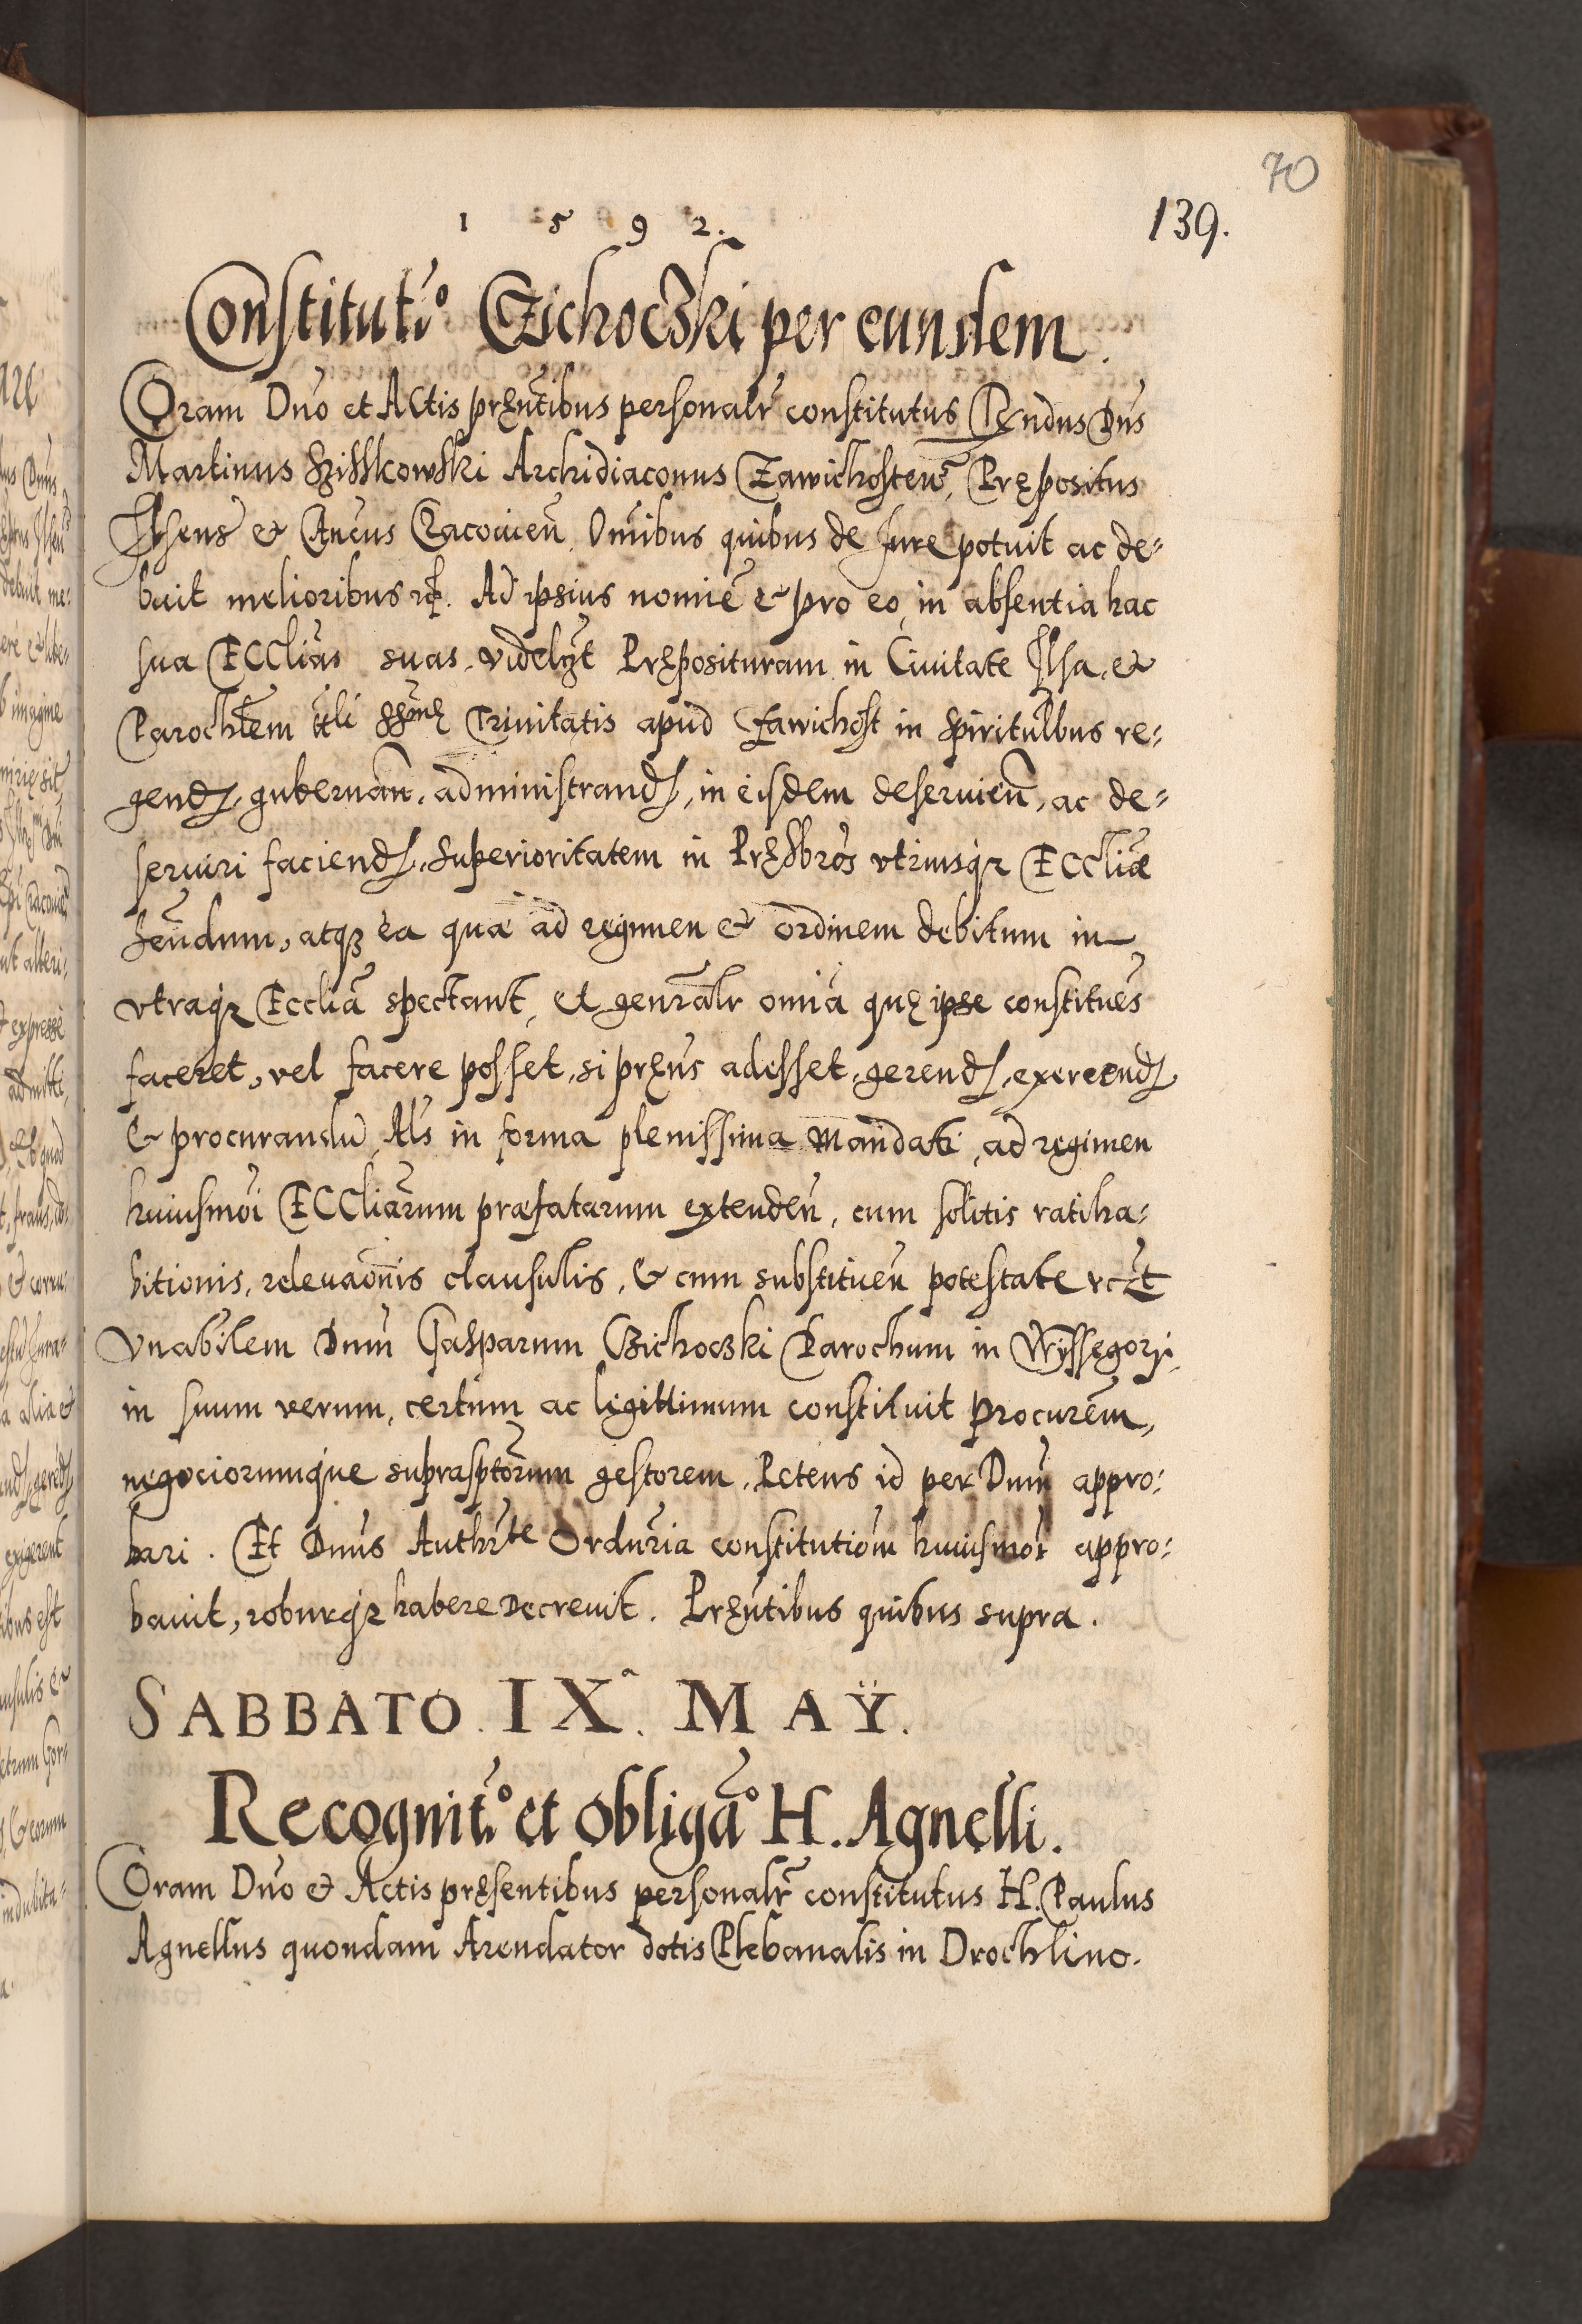 70
1 5 9 2.
139.
Constitut:º Czichoczki per eundem.
Coram Dño et ACtis pręñtibus personalr̃ constitutus Rendus Dñs
Martinus Szisskowski Archidiaconus Zawichosteñ, Prępositus
Ilsens et Cancus Cracouieñ. Omibus quibus de Jure potuit ac de=
buit melioribus rc̃. Ad ipsius nomie et pro eo, in absentia hac
sua ECClias suas. videlȝt Pręposituram in Ciuitate Ilsa, et
Parochlem ttli SSmę Trinitatis apud Zawichost in Spiritulbus re=
gend, gubernan, administrand, in eisdem deseruieñ, ac de=
seruiri faciend, Superioritatem in Pręsbros vtriusqȝ ECCliæ
heñdum, atqȝ ea quæ ad regimen et ordinem debitum in
vtraqȝ Ecclia spectant, et genralr omia quę ipse constitues
faceret, vel facere posset, si pręñs adesset, gerend, exercend
et procurandu, Als in forma plenissima mandati, ad regimen
huiusmoi ECCliarum præfatarum extendeñ, cum solitis ratiha=
bitionis, releuaonis clausulis, et cum substitueñ potestate
Vnabilem Dnm Gasparum Czichoczki Parochum in Wyssegorzi
in suum verum, certum ac legittimum constituit procurem,
negociorumque suprasptorum gestorem, Petens id per Dnm appro=
bari. Et Dnus Authrte Ordnria constitutiom huiusmoi appro=
bauit, roburqȝ habere decreuit. Pręñtibus quibus supra.
SABBATO. IXª. MAŸ.
Recognit:º et obligaº H. Agnelli.
Coram Dño et Actis pręsentibus personalr̃ constitutus H. Paulus
Agnellus quondam Arendator dotis Plebanalis in Drochlino.